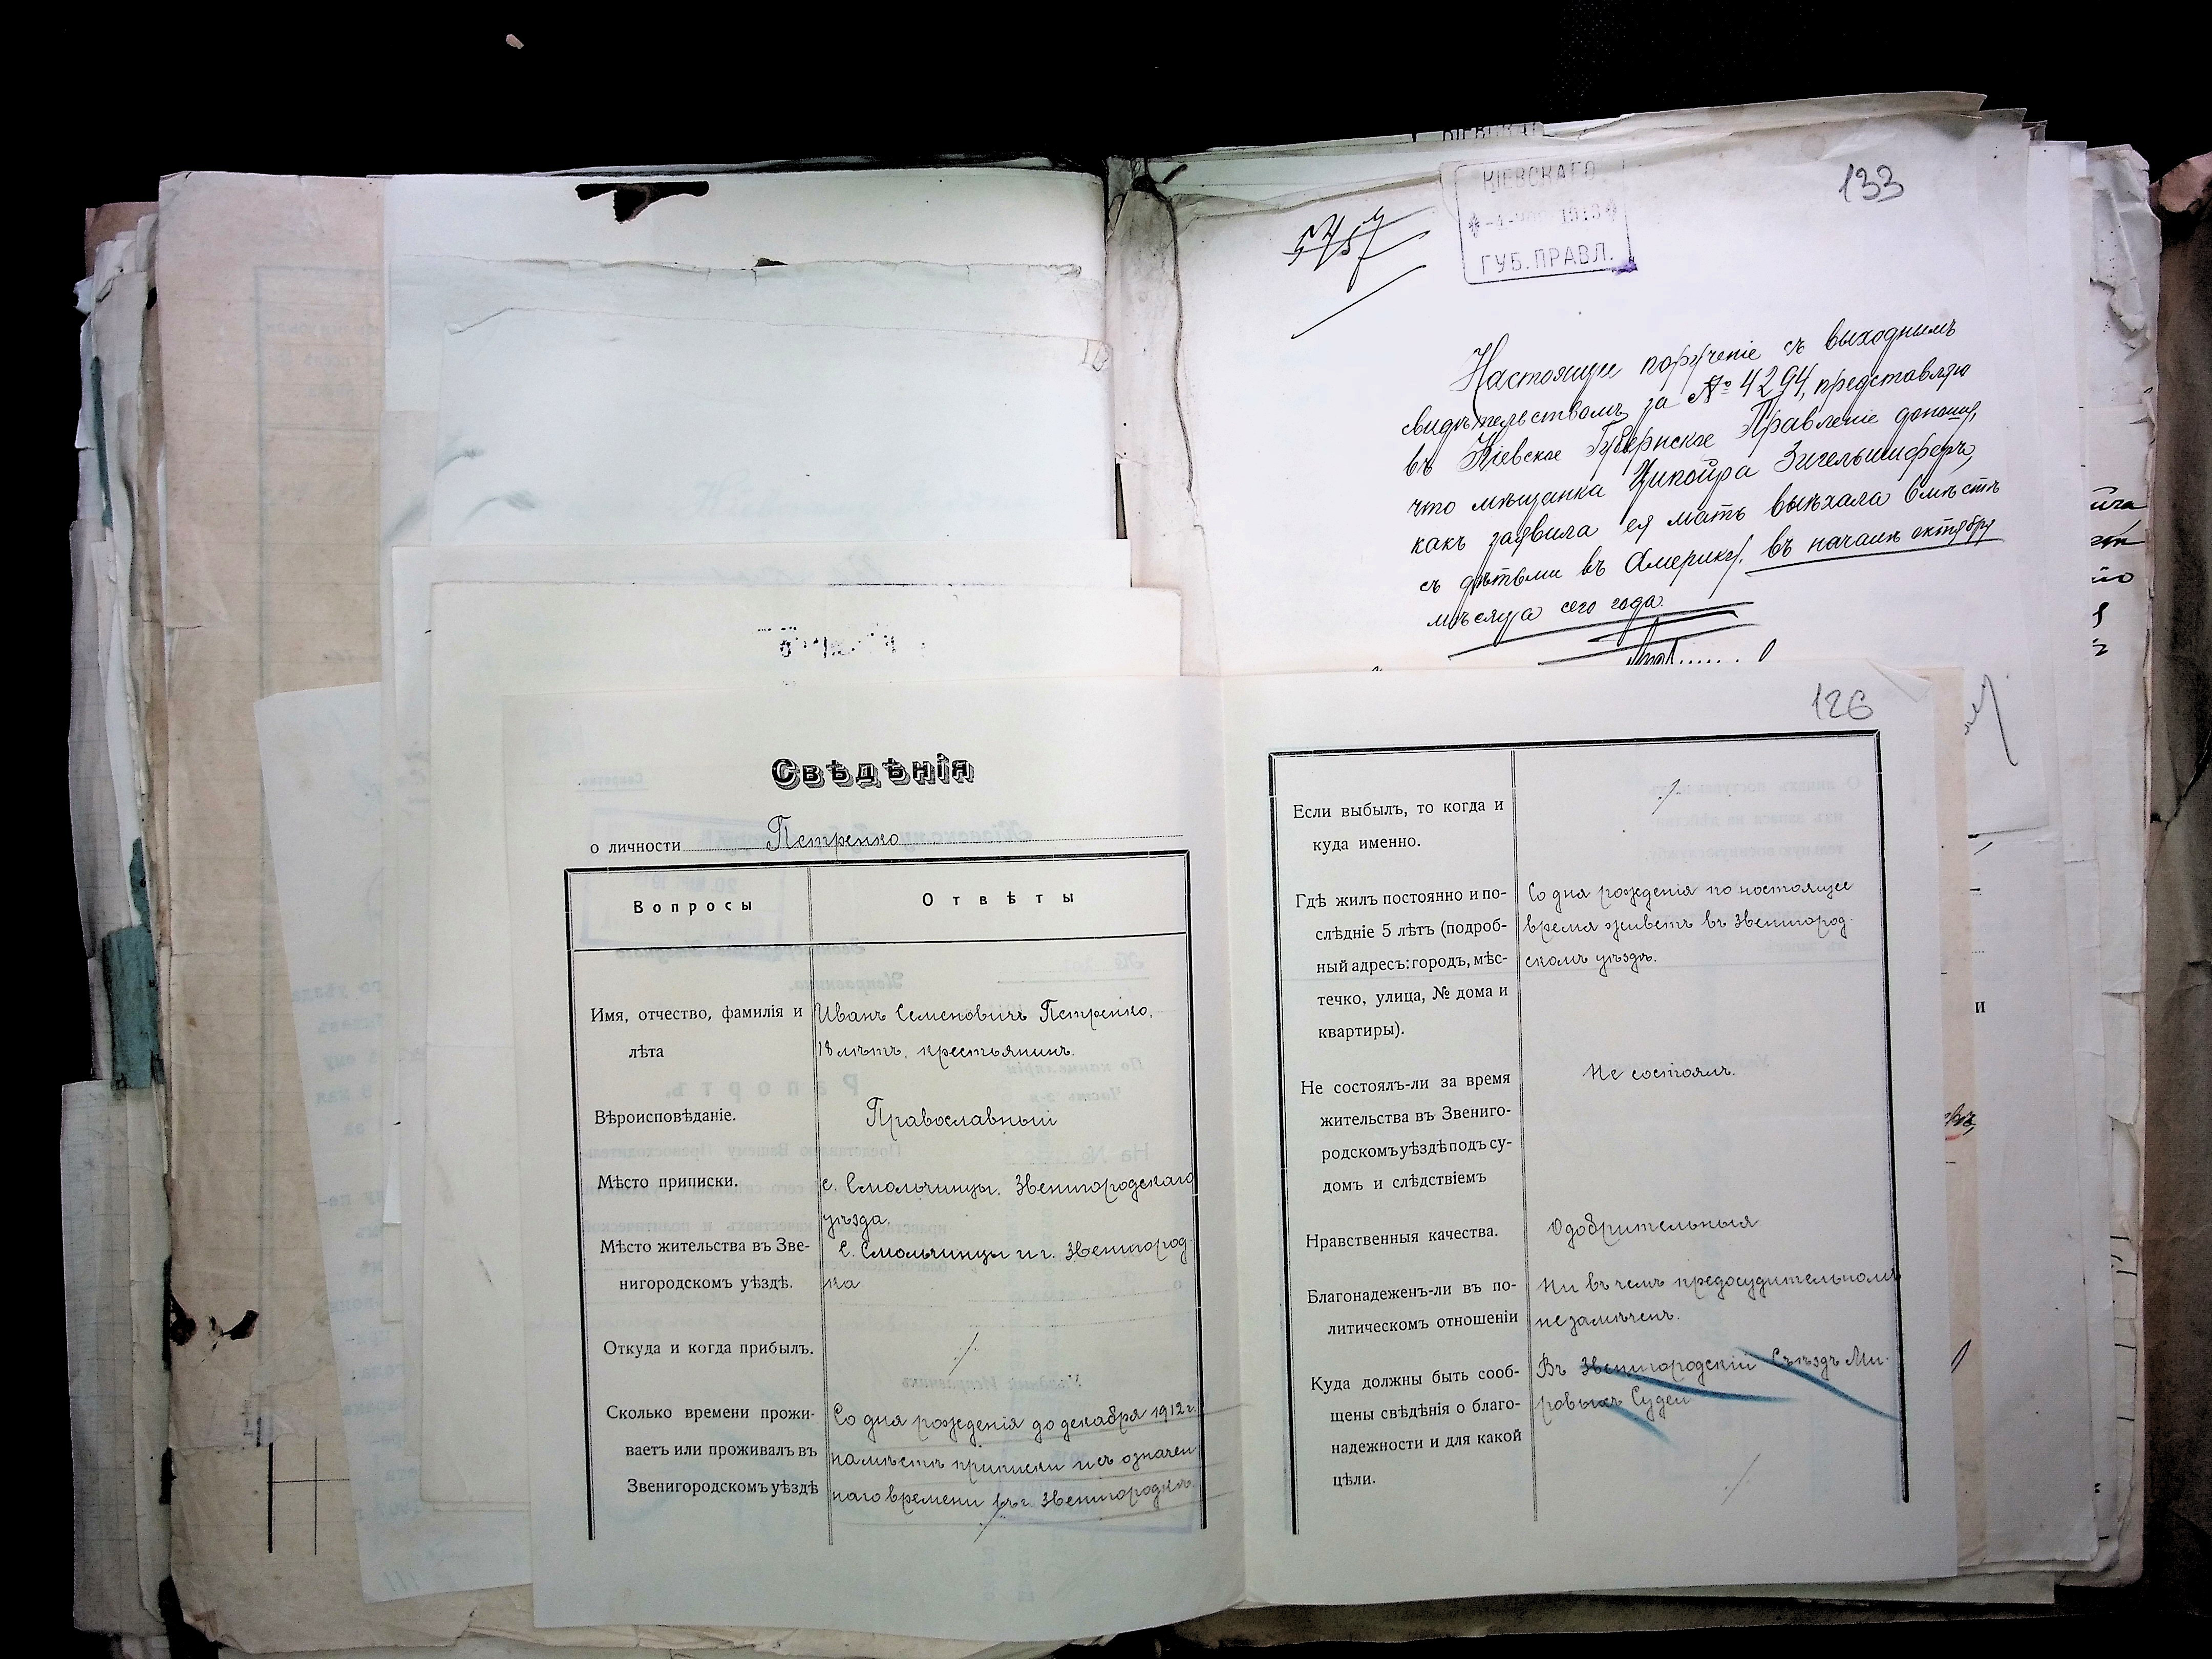 133
5757
КІЕВСКАГО
1913
ГУБ. ПРАВЛ.
Настоящее порученіе съ выходнымъ
свидѣтельствомъ за № 4294, представляю
въ Кіевское Губернское Правленіе доношу,
что мѣщанка Ципойра Зигельшиферъ,
какъ заявила ея мать выѣхала вмѣстѣ
съ дѣтьми въ Америку, въ началѣ октября
мѣсяца сего года.
Свѣдѣнія
о личности Петренко
Вопросы Отвѣты
Имя, отчество, фамилія и Иванъ Семеновичъ Петренко,
лѣта 18 лѣтъ, крестьянинъ.
Вѣроисповѣданіе. Православный
Мѣсто приписки. с. Смольчинцы, Звенигородскаго
уѣзда.
Мѣсто жительства въ Зве- С. Смольчинцы и г. Звенигород-
нигородскомъ уѣздѣ. ка
Откуда и когда прибылъ.
Сколько времени прожи- Со дня рожденія до декабря 1912 г.
ваетъ или проживалъ въ на мѣстѣ приписки и съ означен
Звенигородскомъ уѣздѣ наго времени въ г. Звенигородкѣ.
126
Если выбылъ, то когда и
куда именно.
Гдѣ жилъ постоянно и по- Со дня рожденія по настоящее
слѣдніе 5 лѣтъ (подроб- время живетъ въ Звенигород-
ный адресъ: городъ, мѣс- скомъ уѣздѣ.
течко, улица, № дома и
квартиры).
Не состоялъ-ли за время Не состоялъ.
жительства въ Звениго-
родскомъ уѣздѣ подъ су-
домъ и слѣдствіемъ
Нравственныя качества. Одобрительныя
Благонадеженъ-ли въ по- Ни въ чемъ предосудительномъ
литическомъ отношеніи не замѣченъ.
Куда должны быть сооб- Въ Звенигородскій Съѣздъ Ми-
щены свѣдѣнія о благо- ровыхъ Судей
надежности и для какой
цѣли.